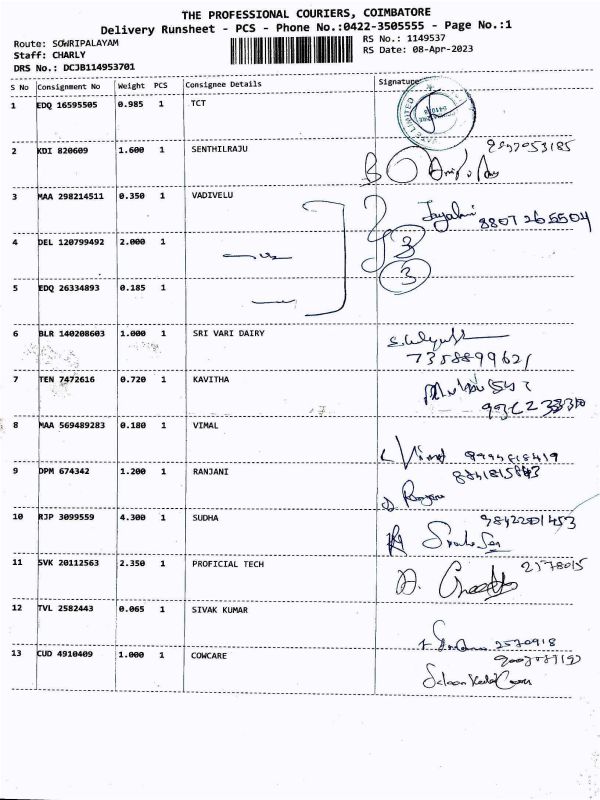 THE PROFESSIONAL COURIERS, COIMBATORE
Delivery Runsheet - PCS - Phone No.:0422-3505555 - Page No.:1
Route: SOWRIPALAYAM
RS No.: 1149537
Staff: CHARLY
RS Date: 08-Apr-2023
DRS No.: DCJB114953701
S No Consignment No Weight PCS Consignee Details Signature
1 EDQ 16595505 0.985 1 TCT
LIMITED
2 KDI 820609 1.600 1 SENTHILRAJU
3 MAA 298214511 0.350 1 VADIVELU
8807265504
4 DEL 120799492 2.000 1
3
3
5 EDQ 26334893 0.185 1
6 BLR 140208603 1.000 1 SRI VARI DAIRY
7358899621
7 TEN 7472616 0.720 1 KAVITHA
8 MAA 569489283 0.180 1 VIMAL
Vimal
9 DPM 674342 1.200 1 RANJANI
10 RJP 3099559 4.300 1 SUDHA
9842201453
11 SVK 20112563 2.350 1 PROFICIAL TECH
2578015
12 TVL 2582443 0.065 1 SIVAK KUMAR
2570918
13 CUD 4910409 1.000 1 COWCARE